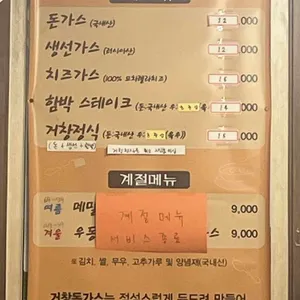 돈가스 (국내산) 12,000
생선가스 (러시아산) 12,000
치즈가스 (100% 모차렐라치즈) 14,000
함박 스테이크 (돈:국내산 우:호주산 육) 14,000
거창정식 (돈:국내산 우:호주산 육우) 15,000
(돈+생선+함박)
계절메뉴
여름 메밀 9,000
겨울 우동 스 9,000
계절 메뉴
서비스 종료
※ 김치, 쌀, 무우, 고추가루 및 양념재(국내산)
거창돈가스는 정성스럽게 두드려 만들어